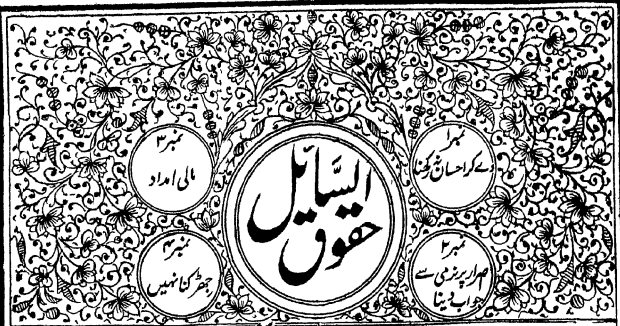 حقوق السَّائل
نمبر ۱
دے کر احسان نہ رکھنا
نمبر ۲
اصرار پر نرمی سے
جواب دینا
نمبر ۳
مالی امداد
نمبر ۴
جھڑکنا نہیں